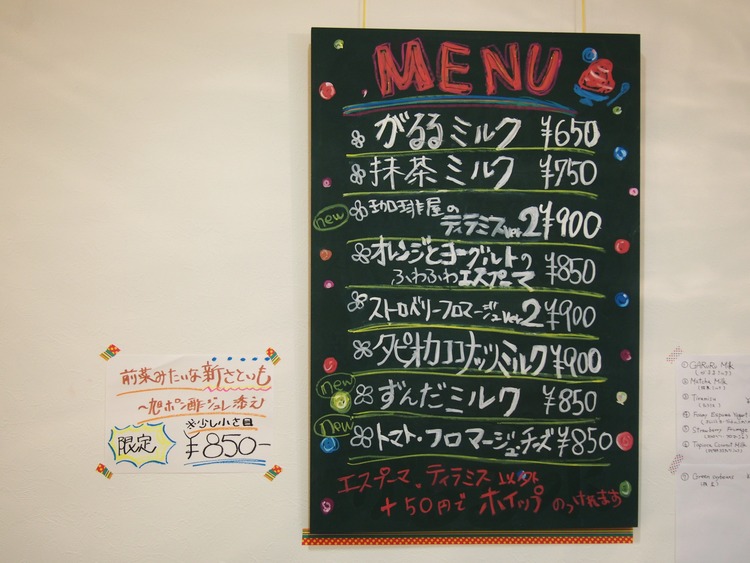 MENU
がるるミルク ¥650
抹茶ミルク ¥750
new 珈琲屋の
ティラミスver.2 ¥900
オレンジとヨーグルトの
ふわふわエスプーマ ¥850
ストロベリーフロマージュver.2 ¥900
タピオカココナッツミルク ¥900
new ずんだミルク ¥850
new トマト・フロマージュ・チーズ ¥850
エスプーマ、ティラミス以外
+50円でホイップのっけれます
前菜みたいな新さといも
〜旭ポン酢ジュレ添え〜
限定
※少し小さ目
¥850-
① GARuRu Milk
(がるるミルク)
② Matcha Milk
③ Tiramisu
⑤ Strawberry Fromage
⑥ Tapioca Coconut Milk